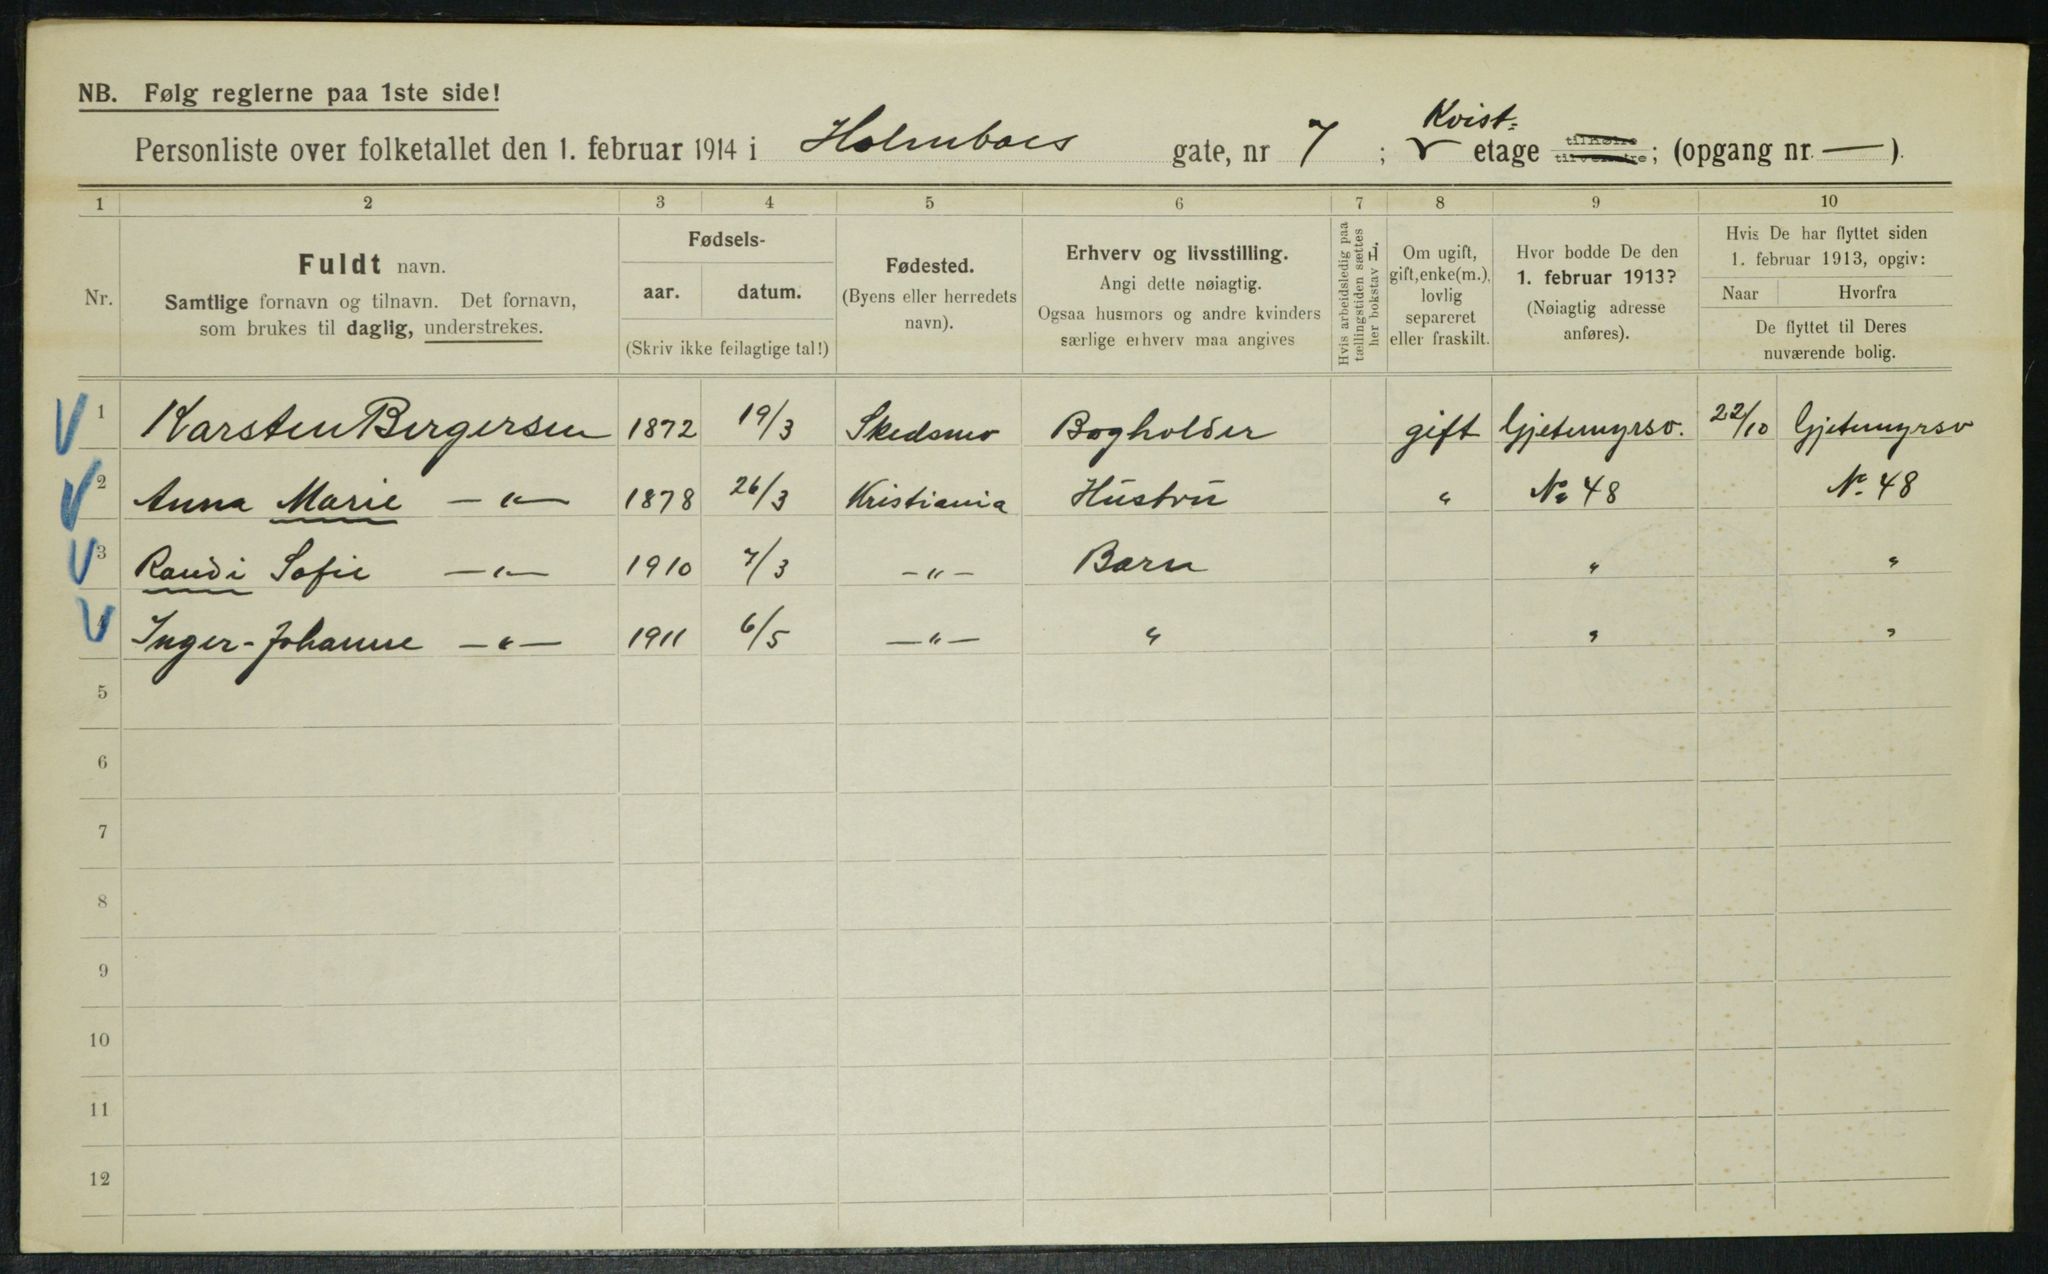 NB. Følg reglerne paa 1ste side!
Kvist=
Personliste over folketallet den 1. februar 1914 i Holmboes gate, nr 7 ; etage tilhøire tilvenstre; (opgang nr. — ).
1 2 3 4 5 6 7 8 9 10
Nr.
Fuldt navn.
Samtlige fornavn og tilnavn. Det fornavn,
som brukes til daglig, understrekes.
Fødsels-
aar. datum.
(Skriv ikke feilagtige tal!)
Fødested.
(Byens eller herredets
navn).
Erhverv og livsstilling.
Angi dette nøiagtig.
Ogsaa husmors og andre kvinders
særlige erhverv maa angives
Hvis arbeidsledig paa
tællingstiden sættes
her bokstav L.
Om ugift,
gift, enke(m.),
lovlig
separeret
eller fraskilt.
Hvor bodde De den
1. februar 1913?
(Nøiagtig adresse
anføres).
Hvis De har flyttet siden
1. februar 1913, opgiv:
Naar Hvorfra
De flyttet til Deres
nuværende bolig.
1 Karsten Bergersen 1872 19/3 Skedsmo Bogholder gift Gjetemyrsv. 22/10 Gjetemyrsv
2 Anna Marie —"— 1878 26/3 Kristiania Hustru " No 48 No 48
3 Randi Sofie —"— 1910 7/3 —"— Barn " "
4 Inger-Johanne —"— 1911 6/5 —"— " " "
5
6
7
8
9
10
11
12